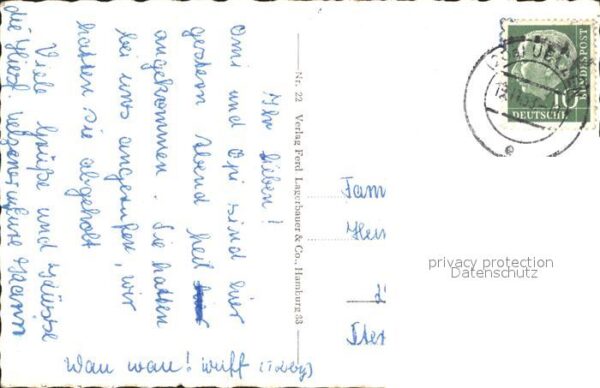 Ihr Lieben!
Omi und Opi sind hier
gestern Abend heil
angekommen. Sie hatten
bei uns angerufen, wir
hatten sie abgeholt
Viele Grüße und
die
Wau wau! Wuff (Tobby)
Nr. 22 Verlag Ferd. Lagerbauer & Co., Hamburg 33
10
DEUTSCHE
BUNDESPOST
Fam
Hein
privacy protection
Datenschutz